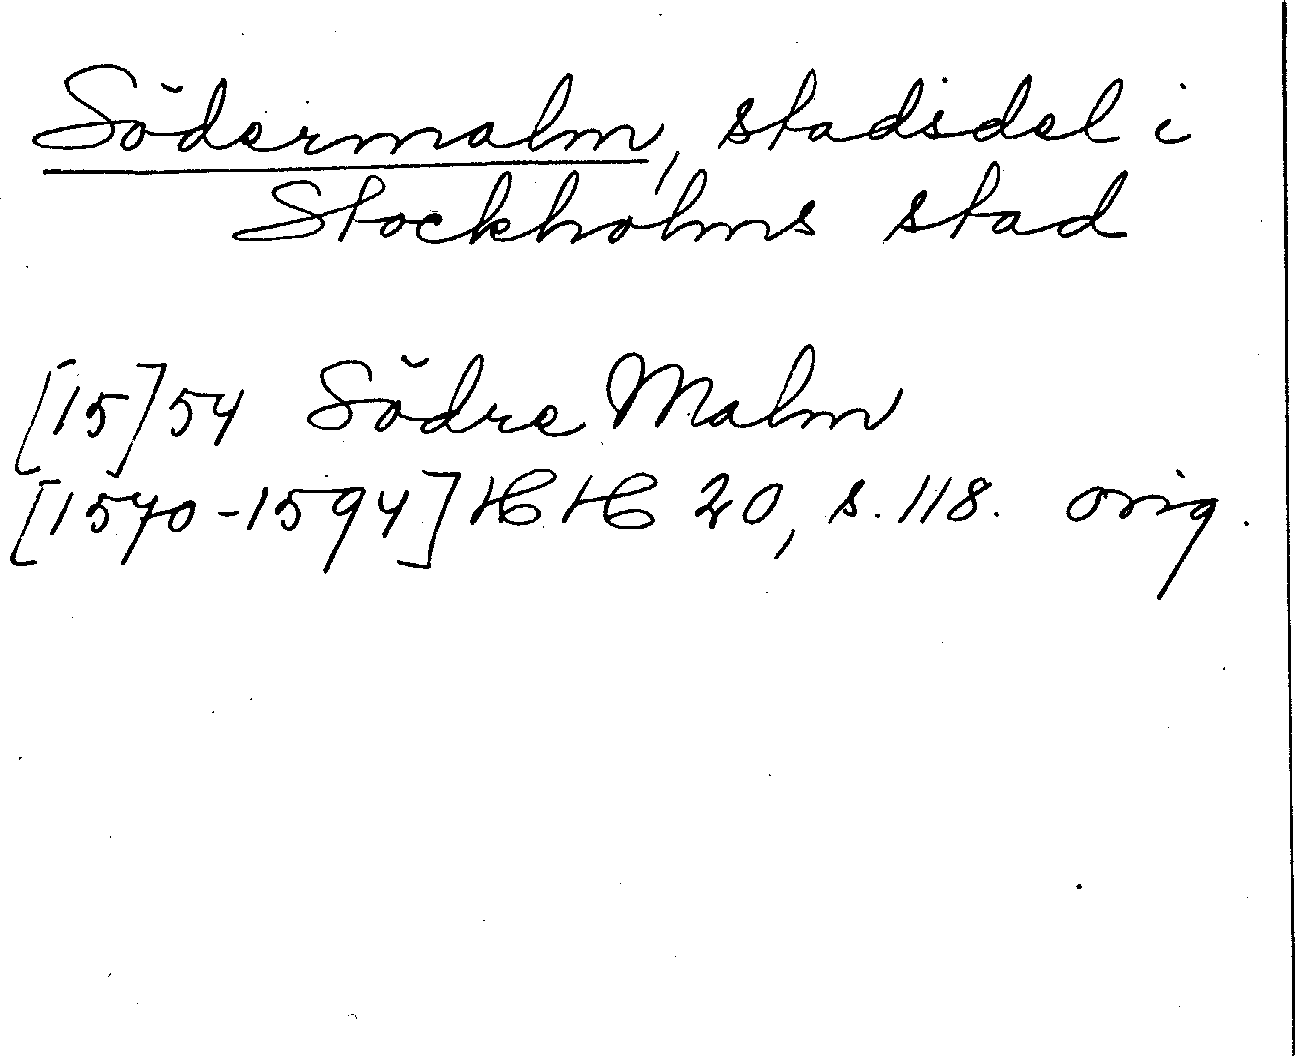 Södermalm, stadsdel i
Stockholms stad
[15]54 Södre Malm
[1570-1594] HH 20, s. 118. orig.